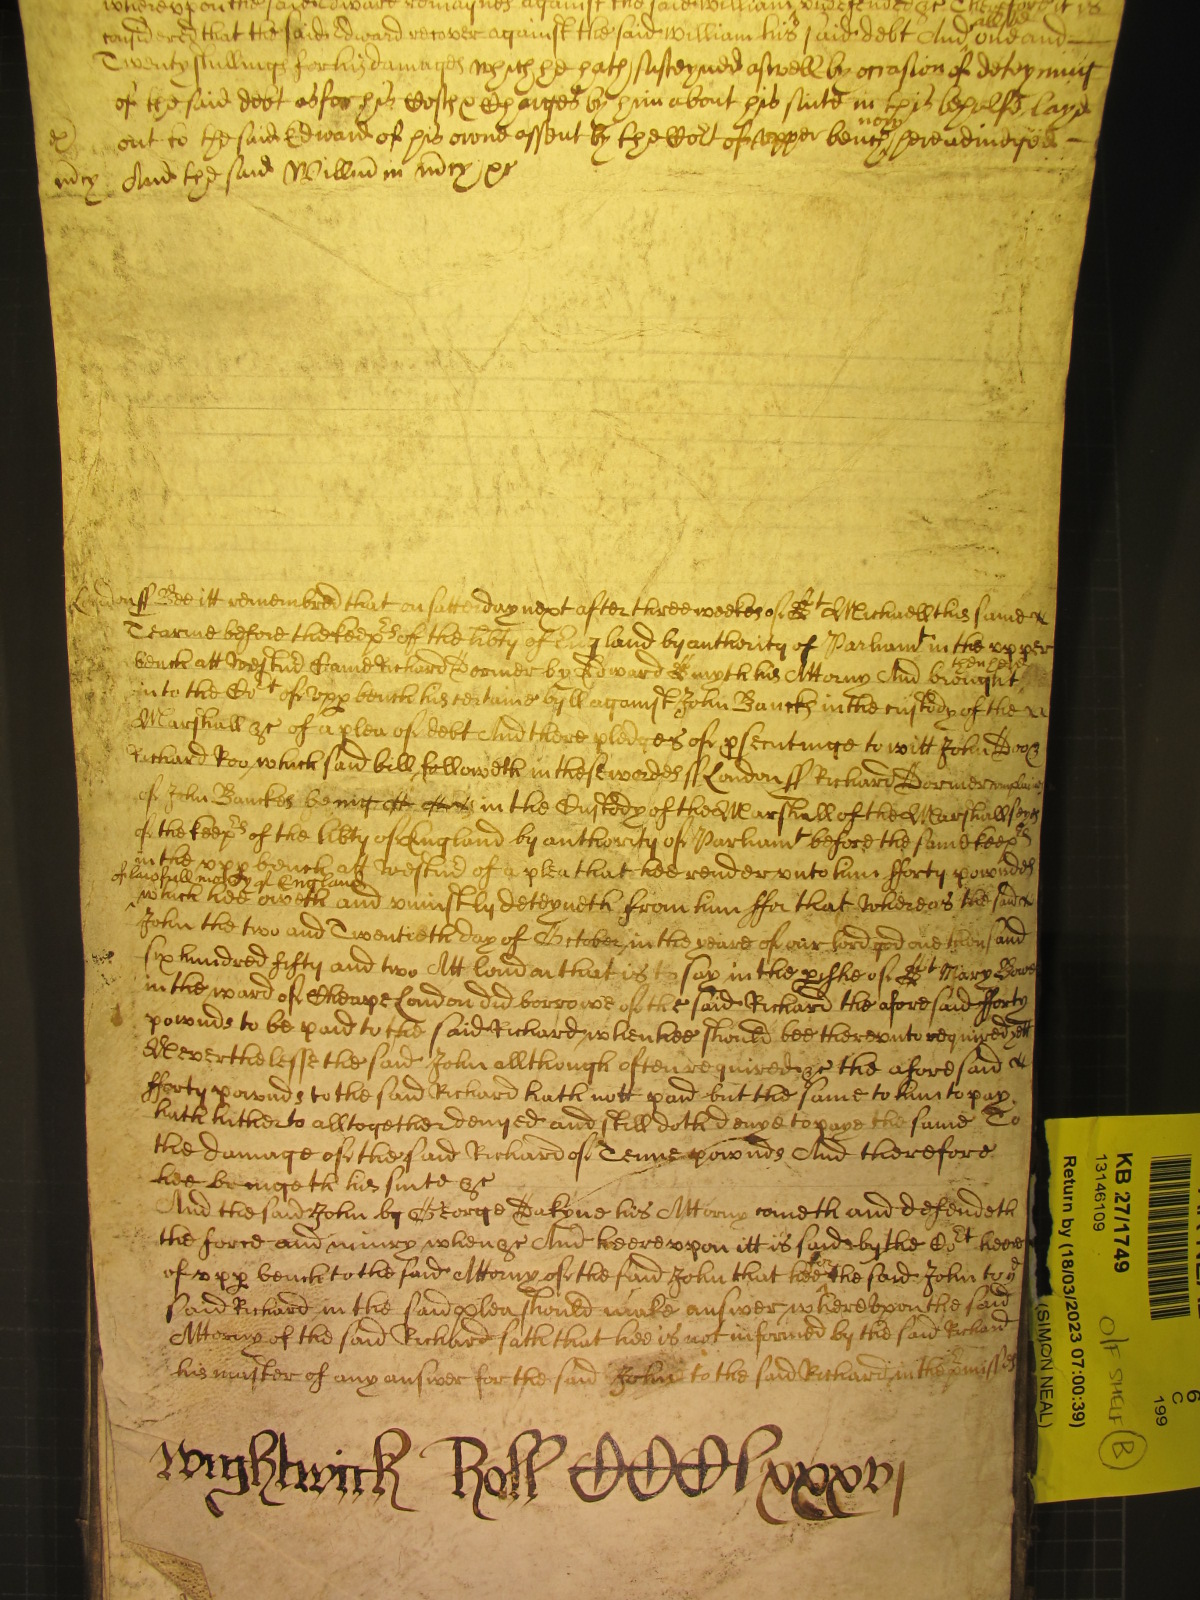 whereupon the said Edward remaynes against the said William undefended &c Therefore it is
considered that the said Edward recover against the said William his said debt And alsoe one and
Twenty shillings for his damages which he hath susteyned aswell by occasion of deteyning
of the said debt as for his Costs & Charges by him about his suite in this behalfe layd
out to the said Edward of his owne assent by the Cort of upper bench now here adiudged
And the said Willm in mcy &c
mcy
London ss Bee itt remembred that on satterday next after three weekes of St Michaell this same
Tearme before the keeprs off the libty of England by authority of Parliamt in the upper
bench att Westmr Came Richard Dormer by Edward Smyth his Attorny And brought then here
into the Cort of upp bench his certaine byll against John Bancks in the custody of the
Marshall &c of a plea of debt And there pledges of psecutinge to witt John Doo &
Richard Roo, which said bill followeth in these wordes ss London ss Richard Dormer complaines
of John Banckes being in the Custody of the Marshall of the Marshallsey
of the keeprs of the libty of England by authority of Parliamt before the same keeprs
in the upp bench att Westmr of a plea that hee render unto him fforty powndes
of lawfull mony of England
which hee oweth and uniustly deteyneth from him ffor that Whereas the said
John the two and Twentieth day of October in the yeare of our lord god one thousand
six hundred fifty and two Att london that is to say in the pishe of St Mary Bowe
in the ward of Cheape London did borrowe of the said Richard the aforesaid fforty
pownds to be paid to the said Richard when hee should bee thereunto required yett
Neverthelesse the said John allthough often required &c the aforesaid
fforty pownds to the said Richard hath nott paid but the same to him to pay
hath hitherto alltogether denyed and still doth denye to paye the same To
the damage of the said Richard of Tenne pownds And therefore
hee bringeth his suite &c
And the said John by George Dakyne his Attorny cometh and defendeth
the force and iniury when &c And hereupon itt is said by the Cort heere
of upp bench to the said Attorny of the said John that hee the said John to ye
said Richard in the said plea should make answer, whereupon the said
Attorny of the said Richard saith that hee is not informed by the said Richard
his master of any answer for the said John to the said Richard in the pmisses
Wightwick Roll CCClxxxvj
KB 27/1749
13146109
Return by (18/03/2023 07:00:39)
(SIMON NEAL)
O/F SHELF B
6
C
199